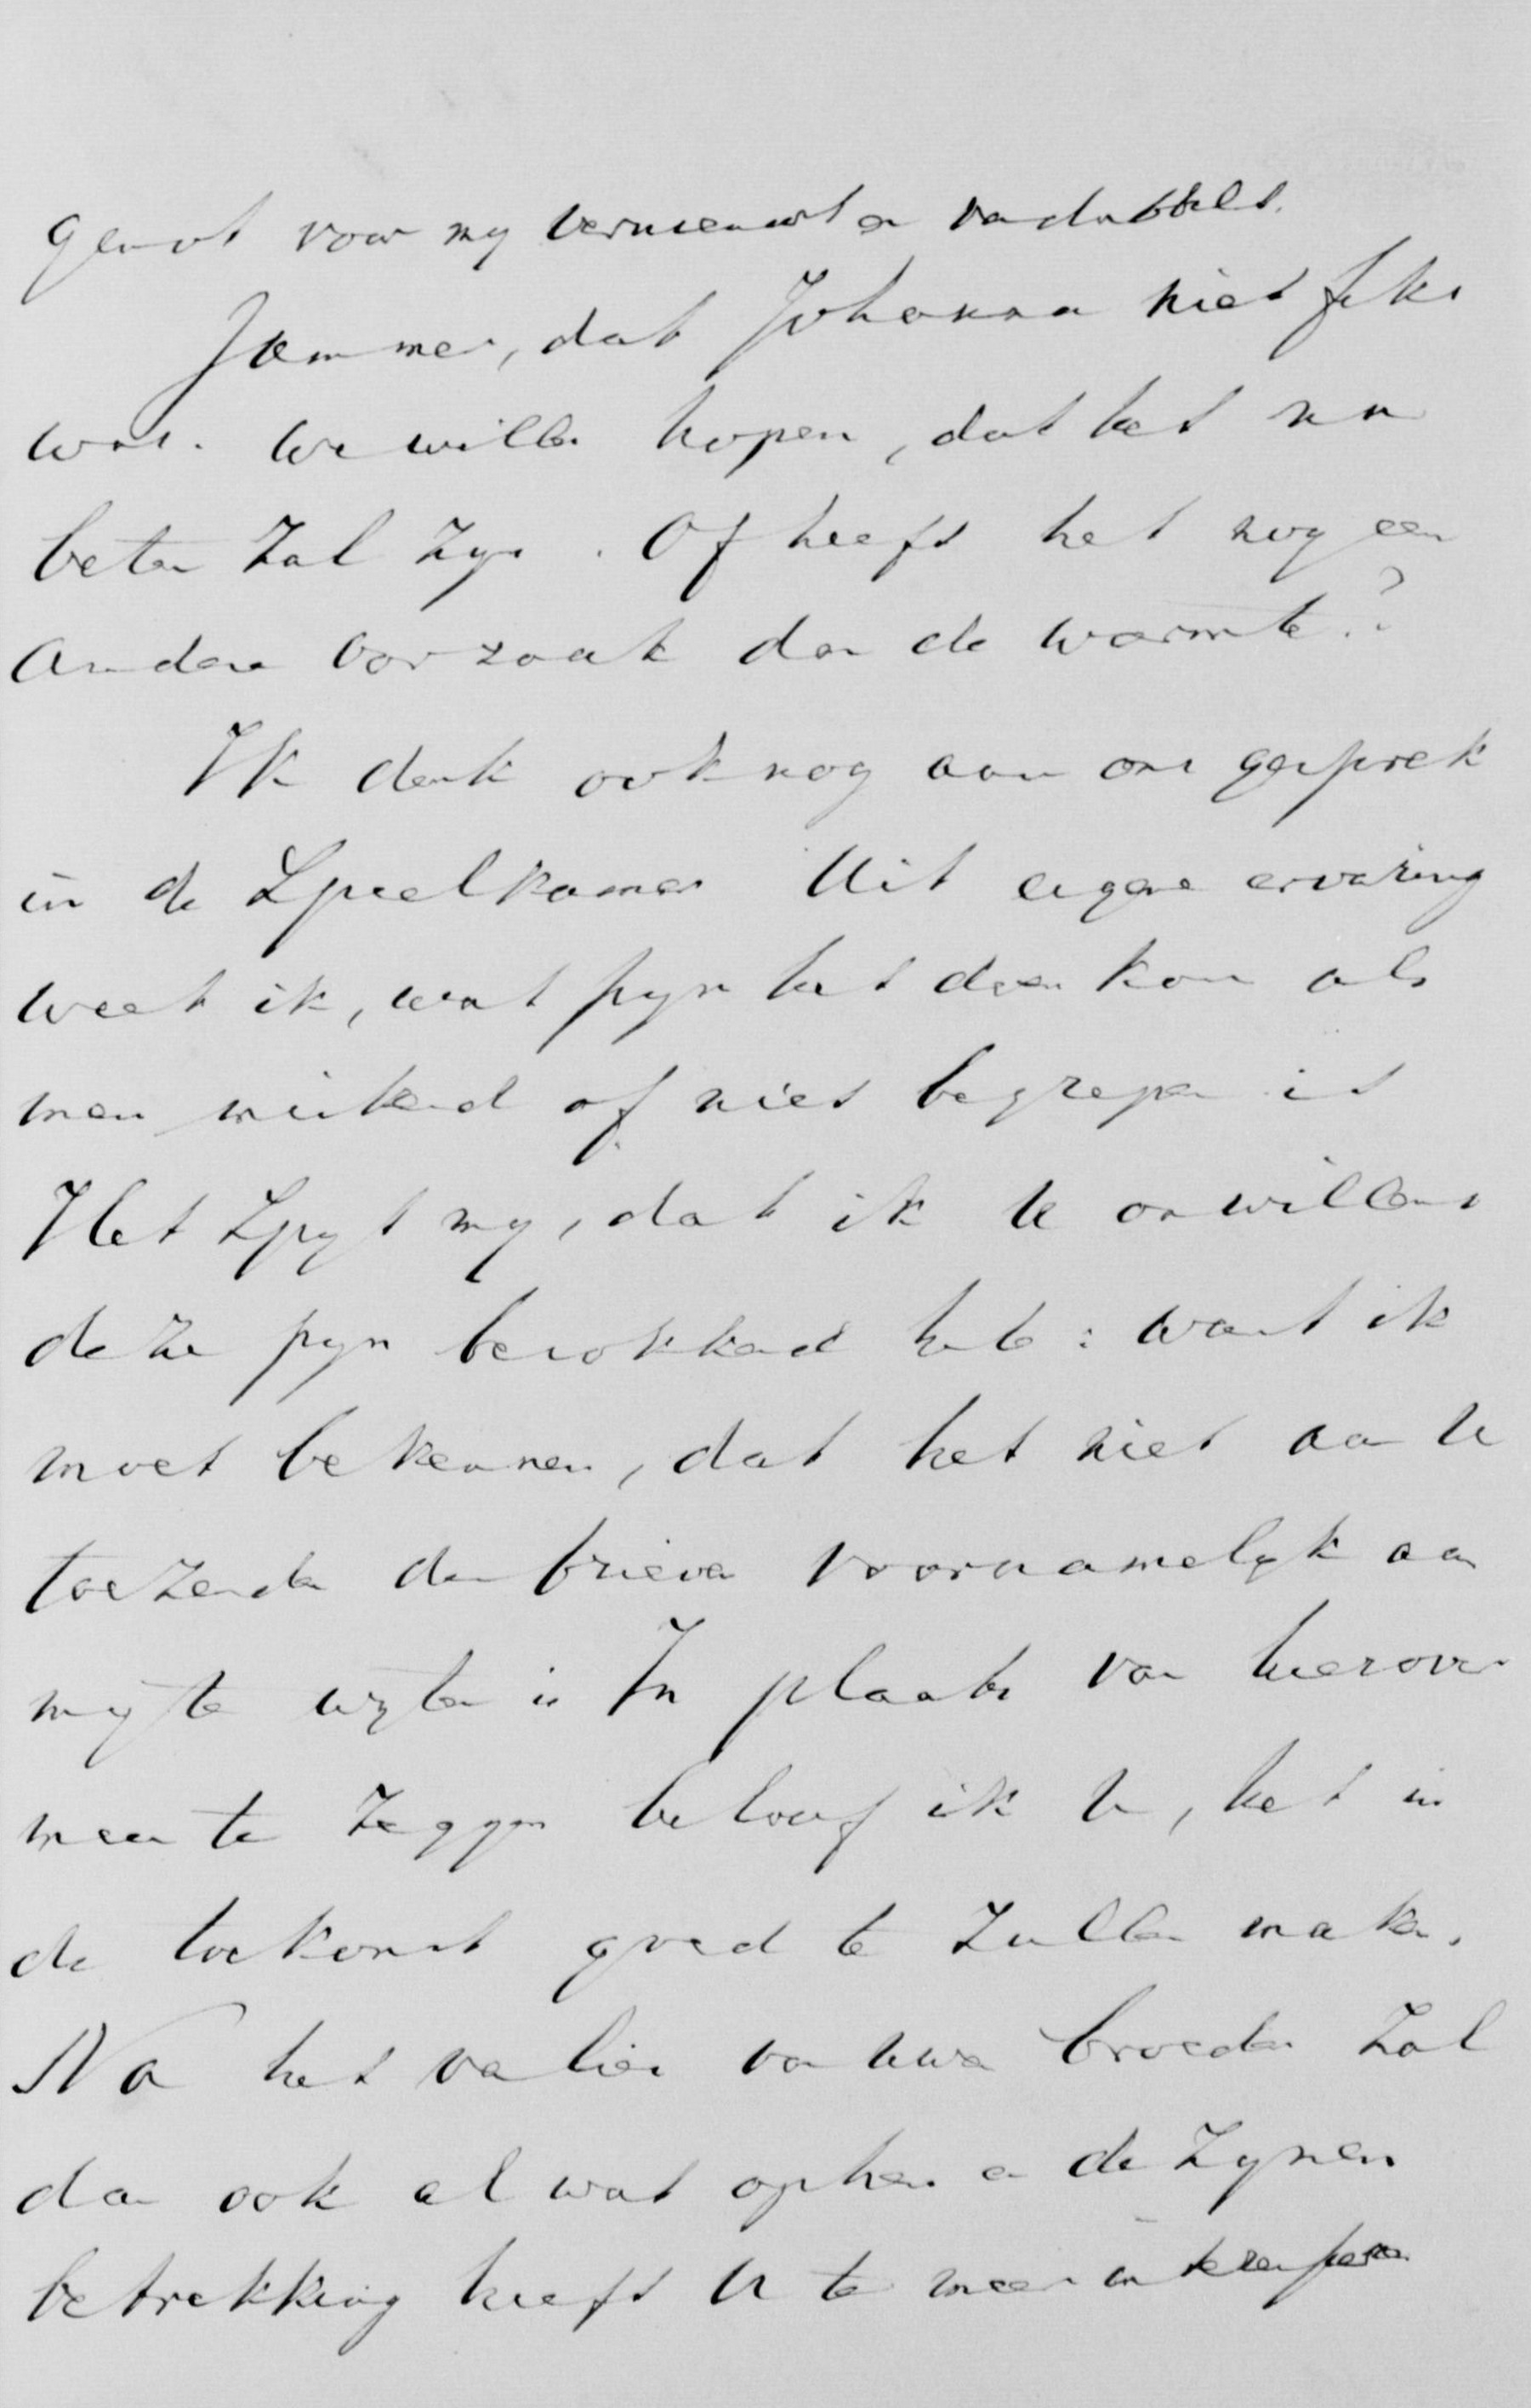 genot voor my vernieuwt en verdubbelt.
Jammer, dat Johanna niet fiks
was. We willen hopen, dat het nu
beter zal zyn. Of heeft het nog een
andere oorzaak dan de warmte?
Ik denk ook nog aan ons gesprek
in de Speelkamer Uit eigene ervaring
weet ik, wat pyn het doen kan als
men miskend of niet begrepen is
Het spyt my, dat ik U onwillens
deze pyn berokkend heb: want ik
moet bekennen, dat het niet aan U
toezenden der brieven voornamelyk aan
my te wyten is In plaats van hierover
meer te zeggen beloof ik U, het in
de toekomst goed te zullen maken.
Na het verlies van uwen broeder zal
dan ook al wat op hem en de zynen
betrekking heeft U te meer interesseren